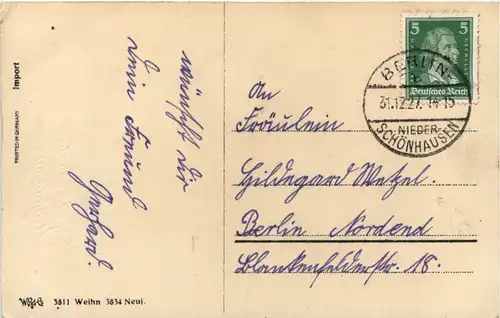 wünscht Dir
Dein Freund
Gerhard.
An
Fräulein
Hildegard Wetzel.
Berlin Nordend
Blankenfelderstr. 18.
5 5
Deutsches Reich
BERLIN-
31.12.27. 14-15
NIEDER-
SCHÖNHAUSEN
Import
PRINTED IN GERMANY
3811 Weihn 3834 Neuj.